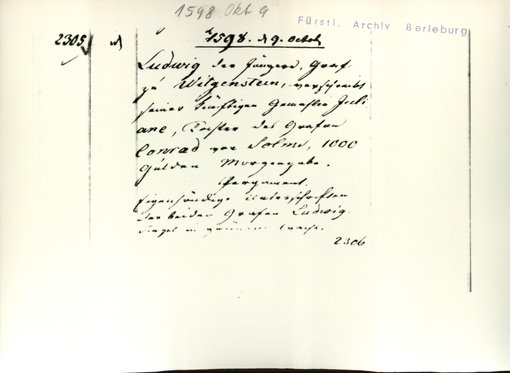 1598 Okt 9
Fürstl. Archiv Berleburg
2305
1598. d 9. Octob
Ludwig der Jüngere, Graf
zu Witgenstein, verschreibt
seiner künftigen Gemahlin Juli
ane, Tochter des Grafen
Conrad von Solms, 1000
Gulden Morgengabe.
Pergament.
Eigenhändige Unterschriften
der beiden Grafen Ludwig.
Siegel in grünem Wachs.
2306